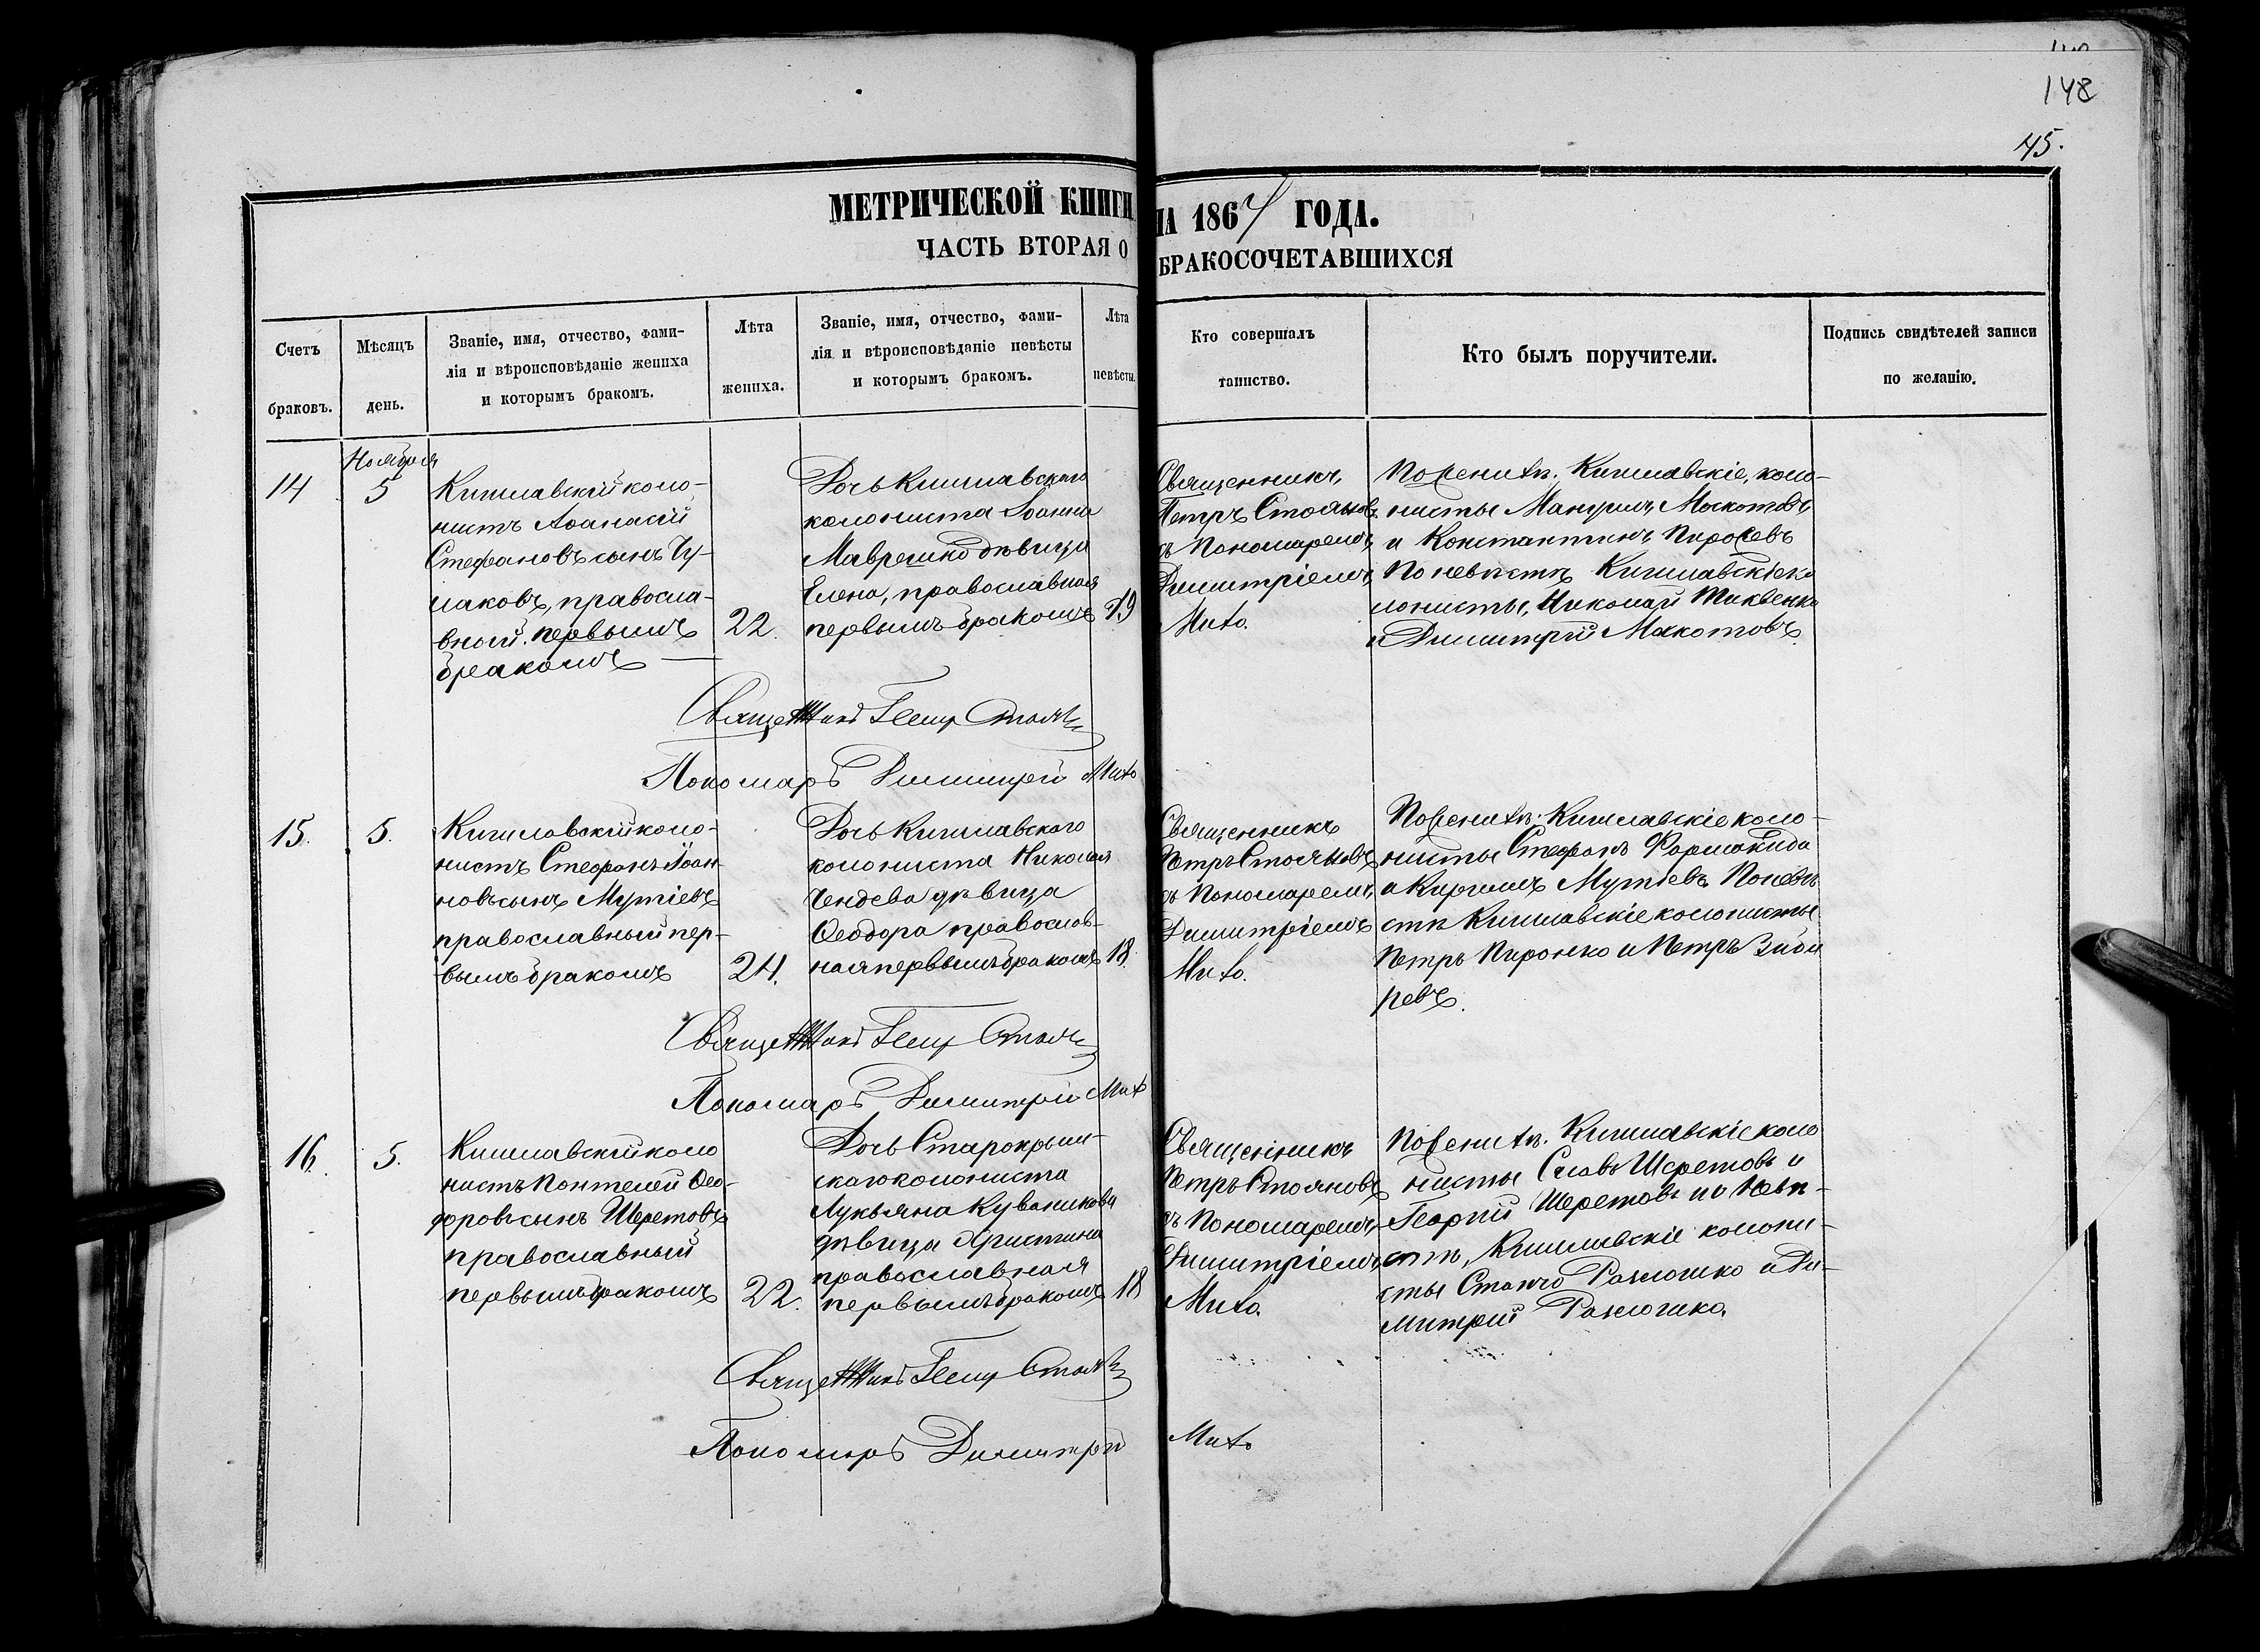 148
45.
МЕТРИЧЕСКОЙ КНИГИ НА 1864 ГОДА.
ЧАСТЬ ВТОРАЯ О БРАКОСОЧЕТАВШИХСЯ
Счетъ браковъ.
Мѣсяцъ день.
Званіе, имя, отчество, фами-
лія и вѣроисповѣданіе жениха
и которымъ бракомъ.
Лѣта жениха.
Званіе, имя, отчество, фами-
лія и вѣроисповѣданіе невѣсты
и которымъ бракомъ.
Лѣта невѣсты.
Кто совершалъ
таинство.
Кто былъ поручители.
Подпись свидѣтелей записи
по желанію.
14
Ноября
5
Кишлавскій коло-
нистъ Аѳанасій
Стефановъ сынъ Чу-
маковъ, правосла-
вной. первымъ
бракомъ
22.
Дочь Кишлавскаго
колониста Іоанна
дѣвица
Елена, православная
первымъ бракомъ
19
Священникъ
Петръ Стояновъ
съ Пономаремъ
Димитріемъ
Мито.
По женихѣ: Кишлавскіе, коло-
нисты
и Константинъ
По невѣстѣ Кишлавскіе ко
лонисты, Николай
и Димитрій
Священникъ Петръ Стояновъ
Пономарь Димитрій Мито
15.
5.
Кишловскій коло-
нистъ Стефанъ Іоан-
новъ сынъ Мутіевъ
православный пер-
вымъ бракомъ
24.
Дочь Кишлавского
колониста Николая
Чендева дѣвица
Ѳеодора православ-
ная первымъ бракомъ
18.
Священникъ
Петръ Стояновъ
съ Пономаремъ
Димитріемъ
Мито.
По женихѣ: Кишлавскіе коло-
нисты Стефанъ
и Мутіевъ По невѣ
стѣ Кишлавскіе колонисты
Петръ Пиронко и Петръ
ревъ.
Священникъ Петръ Стояновъ
Пономарь Димитрій Мито
16.
5.
Кишлавскій коло
нистъ Пантелей Ѳео-
доровъ сынъ Шеретовъ
православный
первымъ бракомъ
22.
Дочь Старокрым-
скаго колониста
Лукьяна Куваникова
дѣвица Христина
православная
первымъ бракомъ
18
Священникъ
Петръ Стояновъ
съ Пономаремъ
Димитріемъ
Мито.
По женихѣ. Кишлавскіе коло
нисты Славъ Шеретовъ и
Георгій Шеретовъ по невѣ-
стѣ, Кишлавскіе колони-
сты Станчо и Ди-
митрій
Священникъ Петръ Стояновъ
Пономарь Димитрій Мито